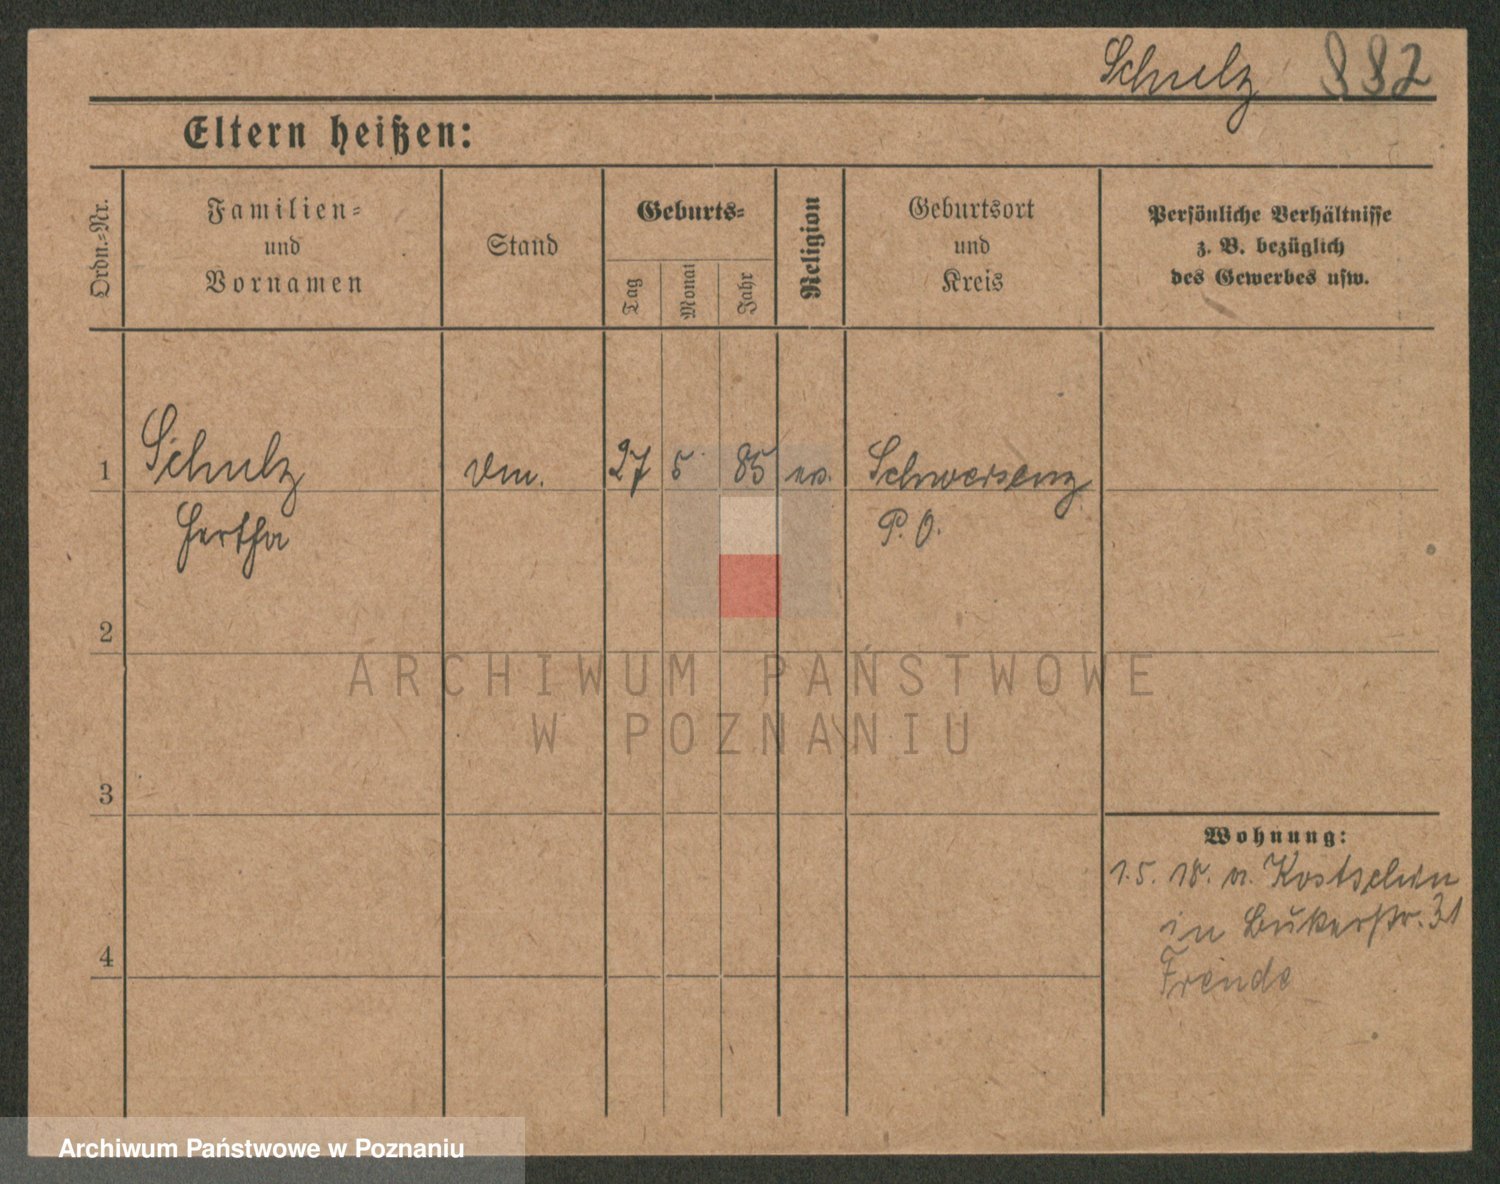 Schulz 882
Eltern heißen:
Ordn.-Nr.
Familien-
und
Vornamen
Stand
Geburts-
Tag
Monat
Jahr
Religion
Geburtsort
und
Kreis
Persönliche Verhältnisse
z. B. bezüglich
des Gewerbes usw.
1 Schulz 27 5 85 ev. Schwersenz
Hertha P. O.
2
3
4
Wohnung:
1.5.18. v. Kostschin
in Bukerstr. 31
ARCHIWUM PAŃSTWOWE
W POZNANIU
Archiwum Państwowe w Poznaniu